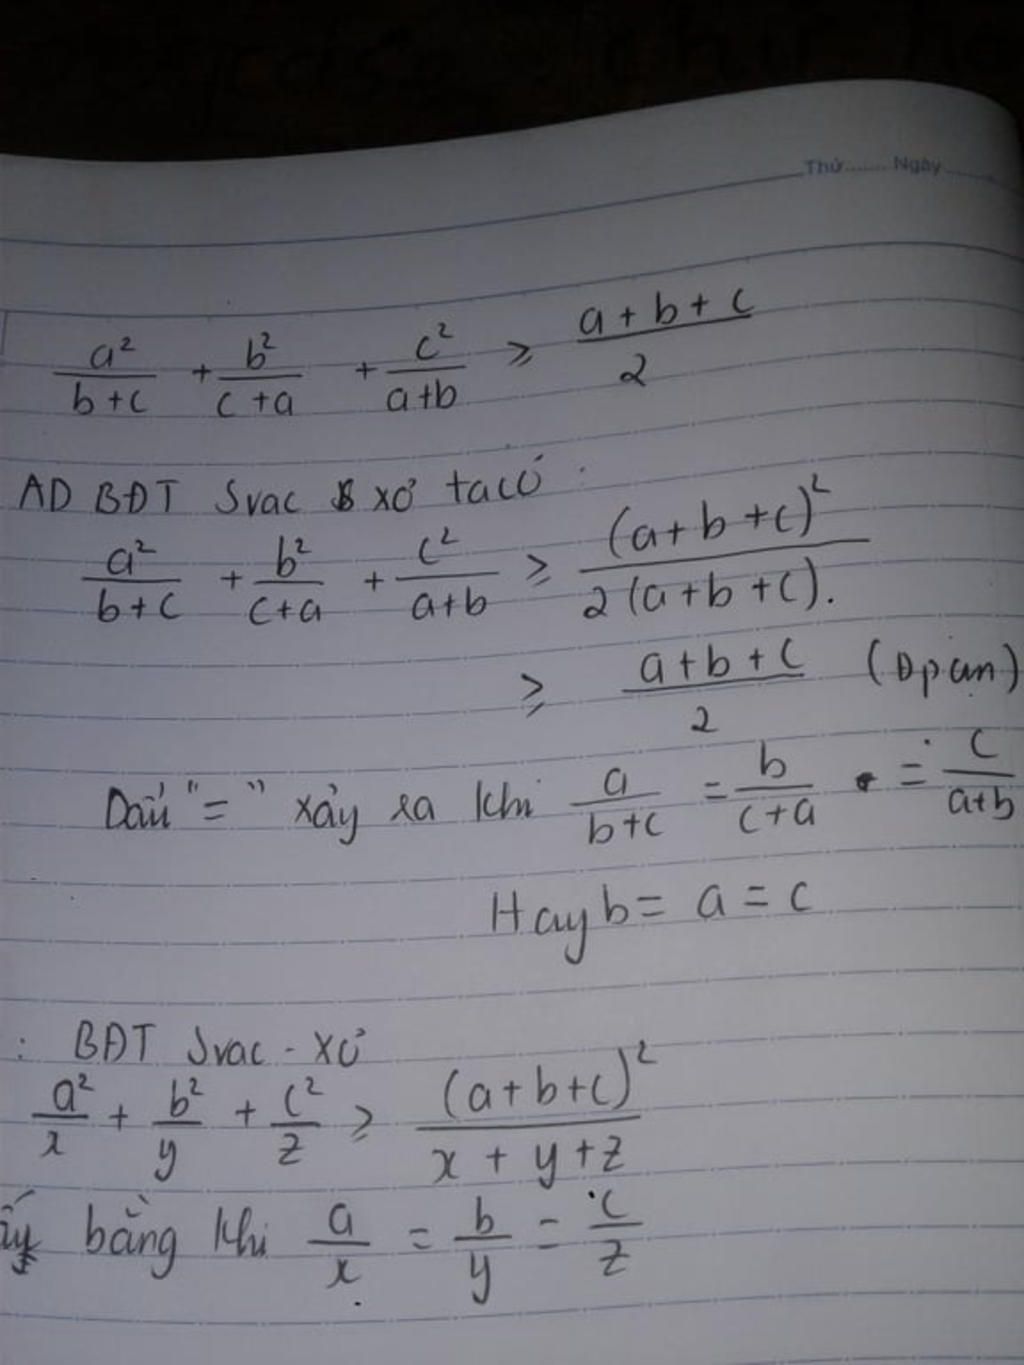 Thứ........ Ngày........
a²/(b+c) + b²/(c+a) + c²/(a+b) ≥ (a+b+c)/2
AD BĐT Svac xơ ta có :
a²/(b+c) + b²/(c+a) + c²/(a+b) ≥ (a+b+c)²/2(a+b+c).
≥ (a+b+c)/2 (Đpcm)
Dấu "=" xảy ra khi a/(b+c) = b/(c+a) = c/(a+b)
Hay b = a = c
: BĐT Svac - xơ
a²/x + b²/y + c²/z ≥ (a+b+c)²/(x+y+z)
bằng khi a/x = b/y = c/z